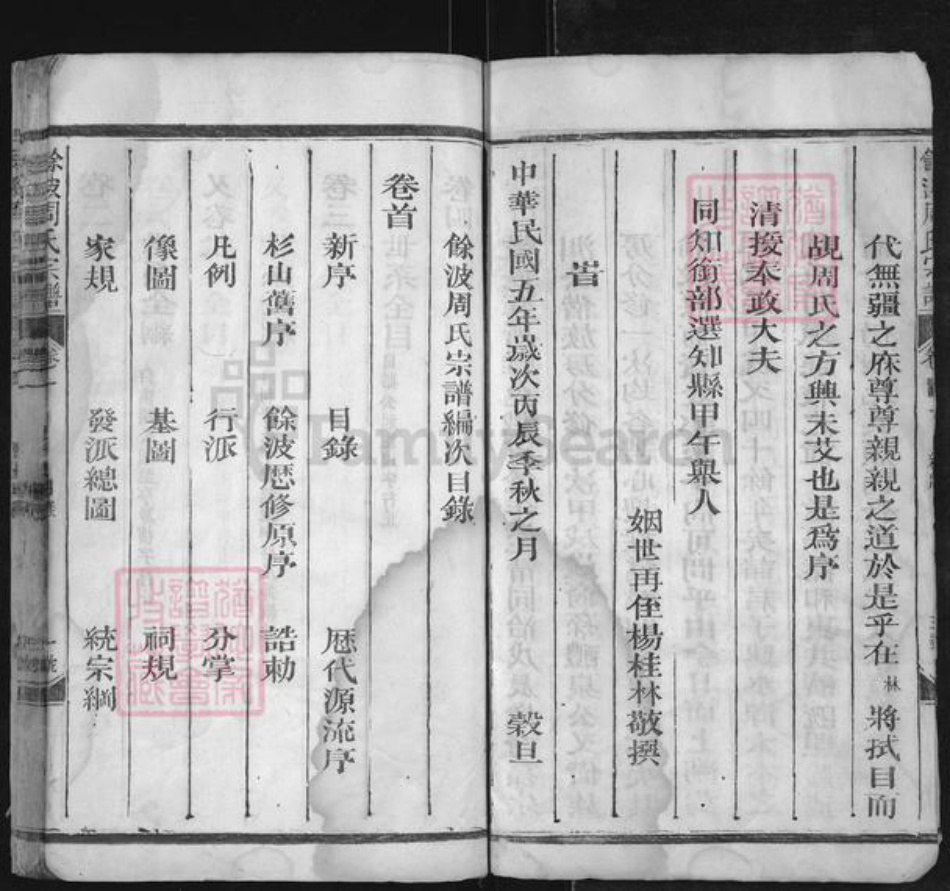 代無疆之庥尊尊親親之道於是乎在林將拭目而
覘周氏之方興未艾也是爲序
清授奉政大夫
同知銜部選知縣甲午舉人
姻世再侄楊桂林敬撰
旹
中華民國五年歲次丙辰季秋之月 穀旦
餘波周氏宗譜編次目錄
卷首
新序 目錄 厯代源流序
杉山舊序 餘波厯修原序 誥勅
凡例 行派 分掌
像圖 基圖 祠規
家規 發派總圖 統宗綱
餘波周氏宗譜
FamilySearch